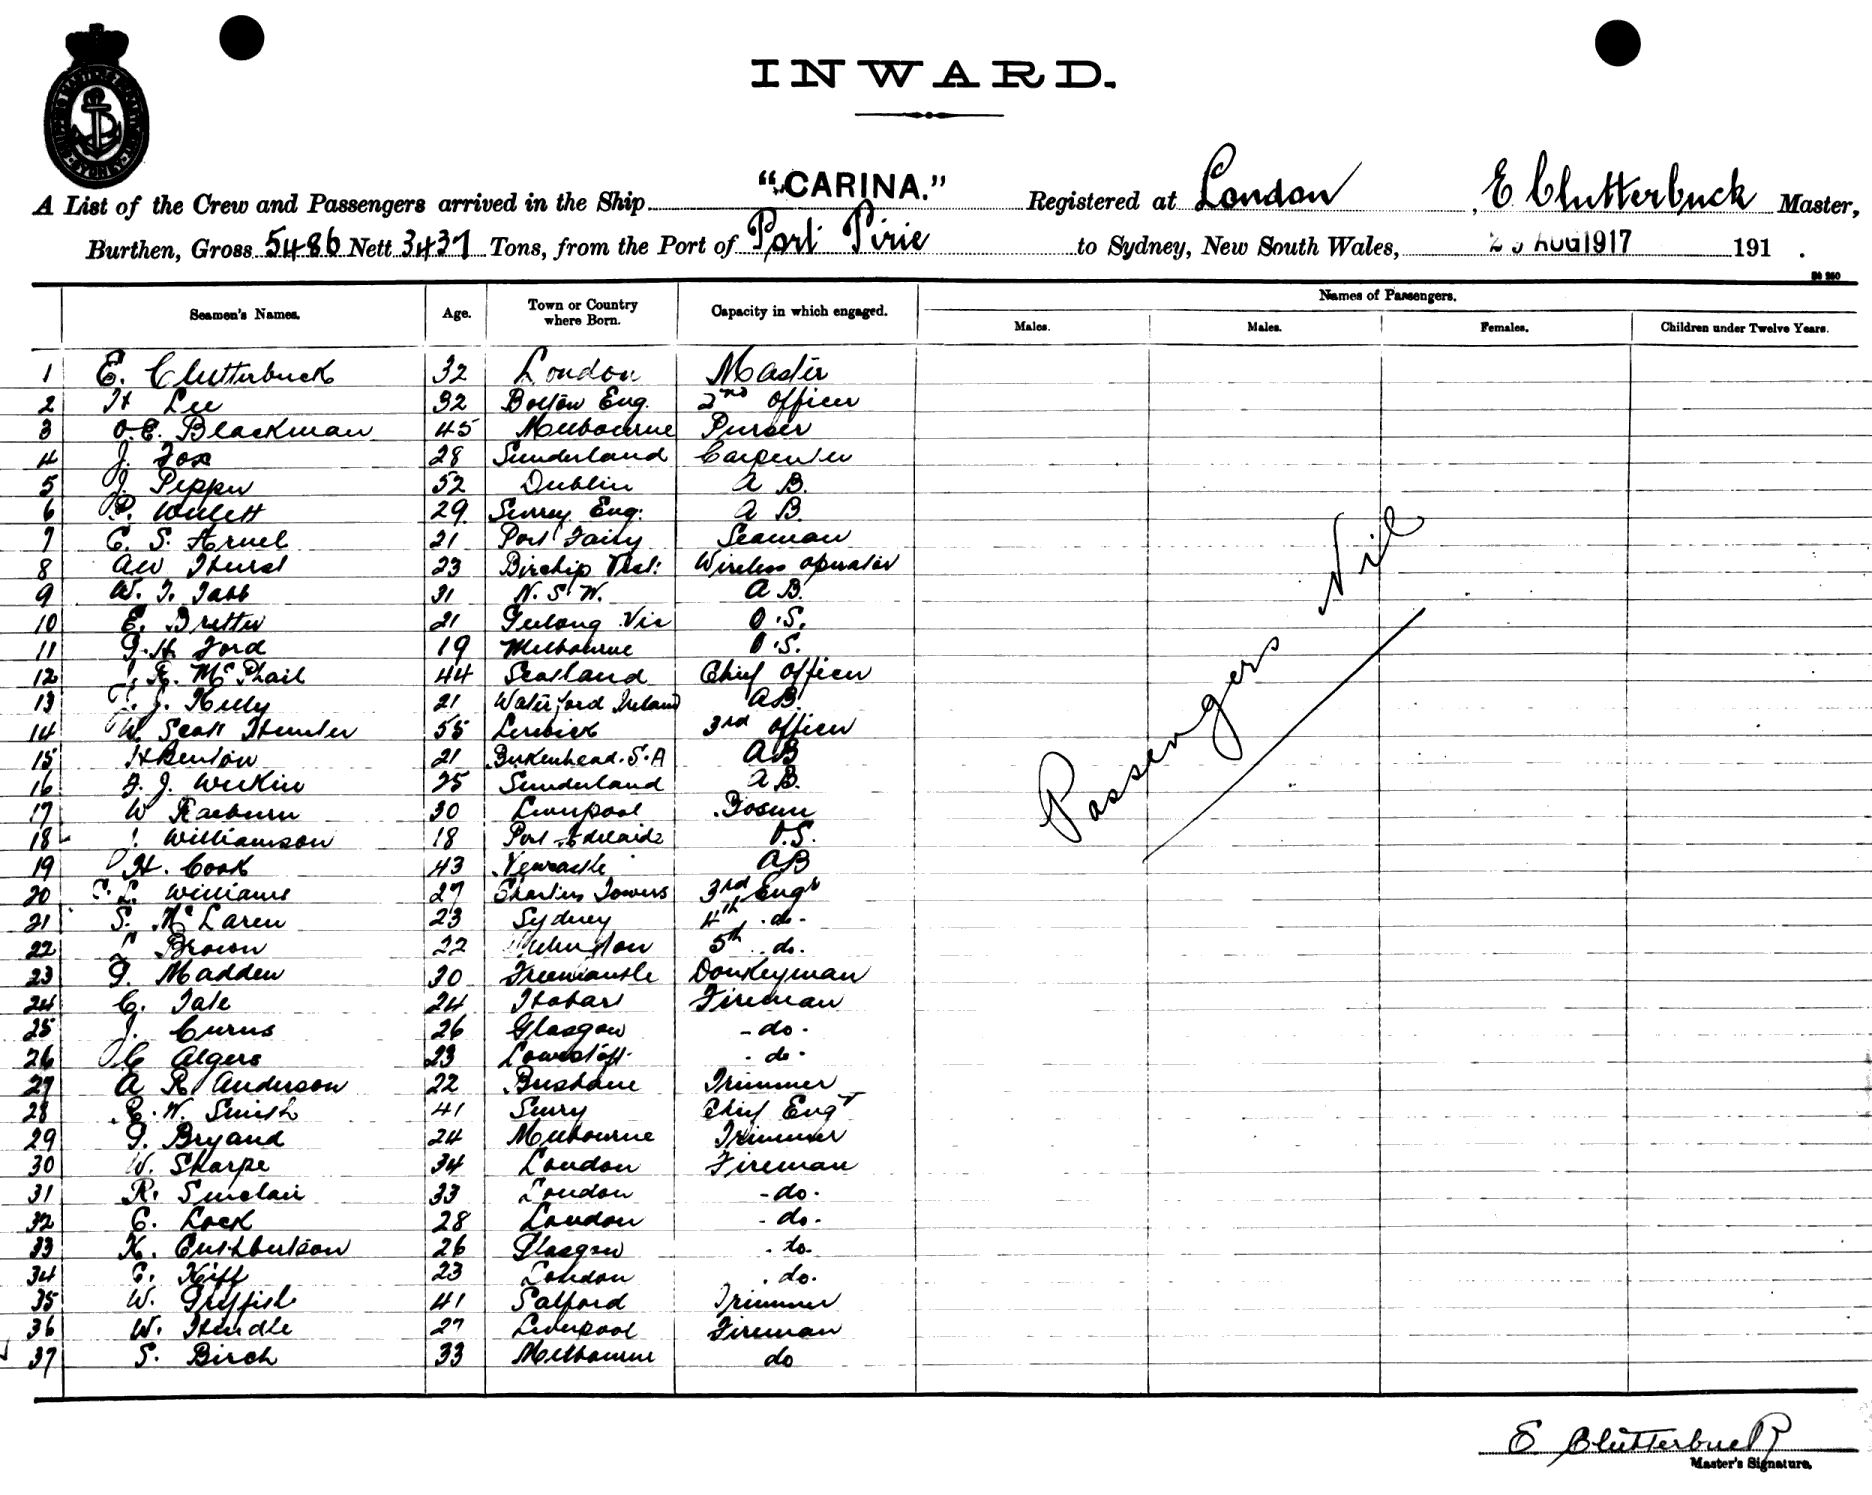 INWARD.
A List of the Crew and Passengers arrived in the Ship "CARINA." Registered at London E Clutterbuck Master,
Burthen, Gross 5486 Nett 3437 Tons, from the Port of Port Pirie to Sydney, New South Wales, AUG 1917 191 .
Seamen's Names. Age. Town or Country where Born. Capacity in which engaged. Names of Passengers.
Males. Males. Females. Children under Twelve Years.
1 E. Clutterbuck 32 London Master
2 H Lee 32 Bolton Eng. 2nd Officer
3 O.E. Blackman 45 Melbourne Purser
4 J. Fox 28 Sunderland Carpenter
5 J. Pepper 52 Dublin A B.
6 P. Willett 29 Surrey Eng. A B.
7 C. S. 21 Port Fairy Seaman
8 AW Hurst 23 Birchip Vict: Wireless operator
9 W. T. Tabb 31 N. S. W. A B.
10 E. 21 Geelong Vic O.S.
11 G.H. Ford 19 Melbourne O.S.
12 R. McPhail 44 Scotland Chief Officer
13 J. Kelly 21 Waterford Ireland AB.
14 W. Scott Hunter 55 Lerwick 3rd Officer
15 H Benton 21 Birkenhead. S.A AB
16 J. 25 Sunderland A B.
17 W Raeburn 30 Liverpool Bosun
18 J. Williamson 18 Port Adelaide O.S.
19 H. Cook 43 Newcastle AB
20 C. L. Williams 27 Charters Towers 3rd Engr
21 S. McLaren 23 Sydney 4th do.
22 Brown 22 5th do.
23 G. Madden 30 Freemantle Donkeyman
24 C. Tate 24 Hobart Fireman
25 J. Currus 26 Glasgow - do -
26 C Algers 23 Lowestoft - do -
27 A R Anderson 22 Brisbane Trimmer
28 E. W. Smith 41 Surry Chief Engr
29 G. Bryand 24 Melbourne Trimmer
30 W. Sharpe 34 London Fireman
31 R. Sinclair 33 London - do -
32 C. Lock 28 London - do -
33 K. Cuthbertson 26 Glasgow - do -
34 C. Kiff 23 London - do -
35 W. Griffith 41 Salford Trimmer
36 W. Hindle 27 Liverpool Fireman
37 S. Birch 33 Melbourne do
Passengers Nil
E Clutterbuck
Master's Signature.